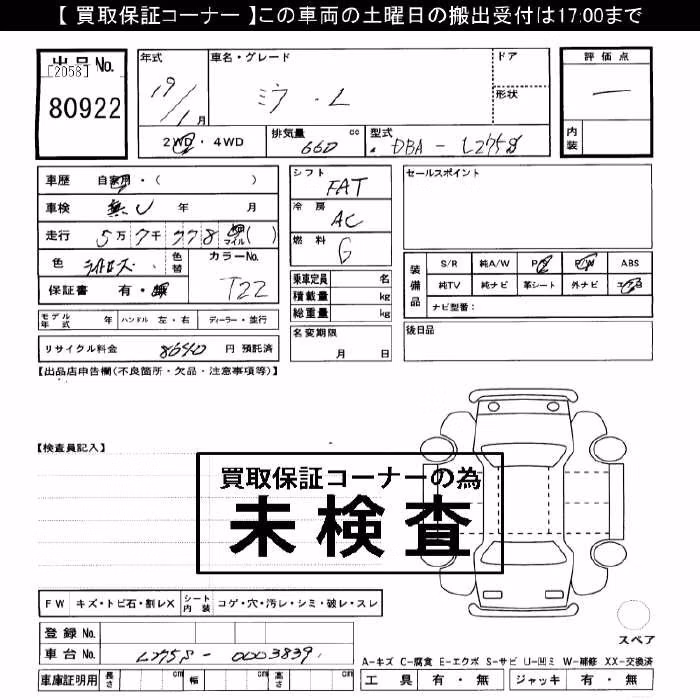 【 買取保証コーナー 】この車両の土曜日の搬出受付は17:00まで
出品No.
[2058]
80922
年式
19/1月
車名・グレード
ミラ・L
ドア
形状
2WD・4WD
排気量 660 cc
型式 DBA-L275S
評価点
ー
内装
車歴 自家用・( )
車検 無し 年 月
走行 5万7千778 マイル( )
色 ライトローズ・ 色替
カラーNo. T22
保証書 有・無
モデル年式 年 ハンドル 左・右 ディーラー・並行
リサイクル料金 8640 円 預託済
シフト FAT
冷房 AC
燃料 G
乗車定員 名
積載量 kg
総重量 kg
名変期限 月 日
セールスポイント
装備品
S/R 純A/W P/S P/W ABS
純TV 純ナビ 革シート 外ナビ エアB
ナビ型番:
後日品
【出品店申告欄(不良箇所・欠品・注意事項等)】
【検査員記入】
買取保証コーナーの為
未検査
FW キズ・トビ石・割レX
シート内装 コゲ・穴・汚レ・シミ・破レ・スレ
登録No.
車台No. L275S-0003839
車庫証明用 長さ cm 幅 cm 高さ cm
スペア
A-キズ C-腐食 E-エクボ S-サビ U-凹ミ W-補修 XX-交換済
工具 有・無 ジャッキ 有・無